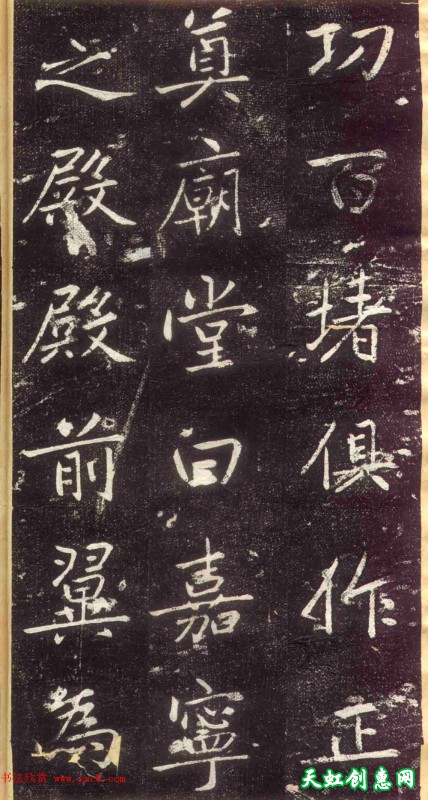 功百堵俱作正
廟堂曰嘉寧
之殿殿前翼為
书法欣赏 www.yac8.com
天虹创惠网